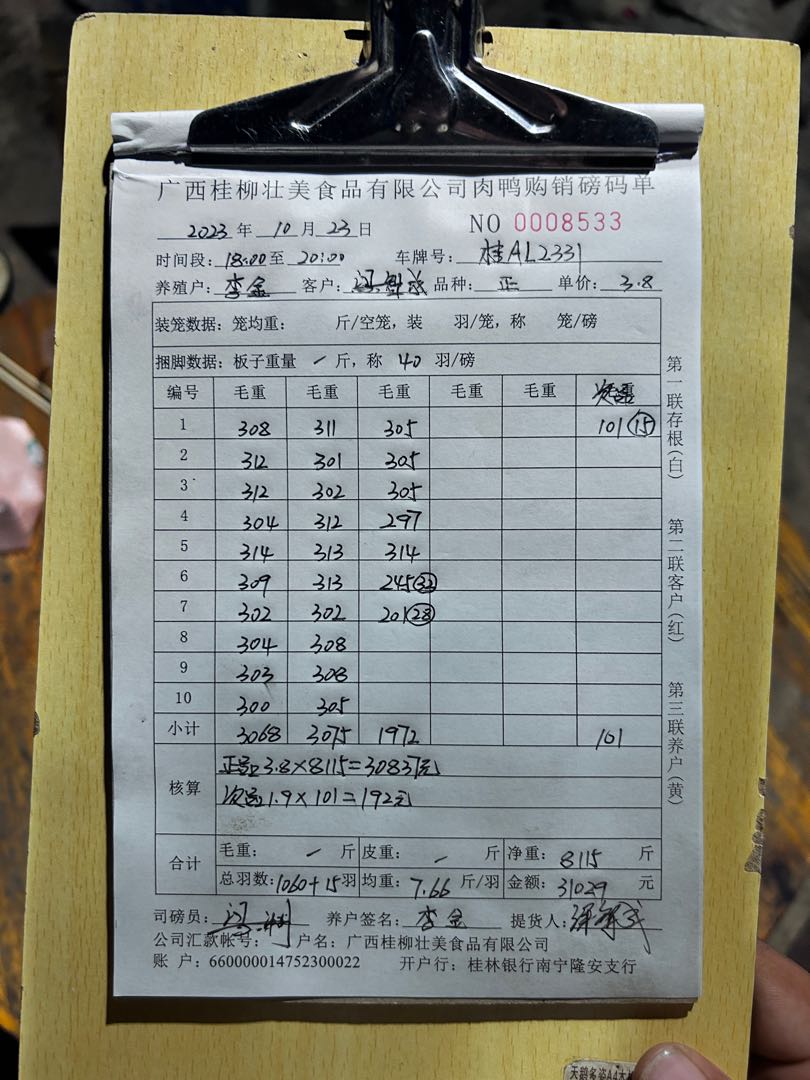 广西桂柳壮美食品有限公司肉鸭购销磅码单
2023 年 10 月 23 日 NO 0008533
时间段: 18:00 至 20:00 车牌号: 桂AL2331
养殖户: 李金 客户: 品种: 正 单价: 3.8
装笼数据: 笼均重: 斤/空笼, 装 羽/笼, 称 笼/磅
捆脚数据: 板子重量 - 斤, 称 40 羽/磅
编号 毛重 毛重 毛重 毛重 毛重
1 308 311 305 101 15
2 312 301 305
3 312 302 305
4 304 312 297
5 314 313 314
6 309 313 245 32
7 302 302 201 28
8 304 308
9 303 308
10 300 305
小计 3068 3075 1972 101
核算 正品 3.8×8115=30837元
次品 1.9×101=192元
合计 毛重: - 斤 皮重: - 斤 净重: 8115 斤
总羽数: 1060+15 羽 均重: 7.66 斤/羽 金额: 31029 元
司磅员: 养户签名: 李金 提货人:
公司汇款帐号: 户名: 广西桂柳壮美食品有限公司
账 户: 660000014752300022 开户行: 桂林银行南宁隆安支行
第一联存根(白)
第二联客户(红)
第三联养户(黄)